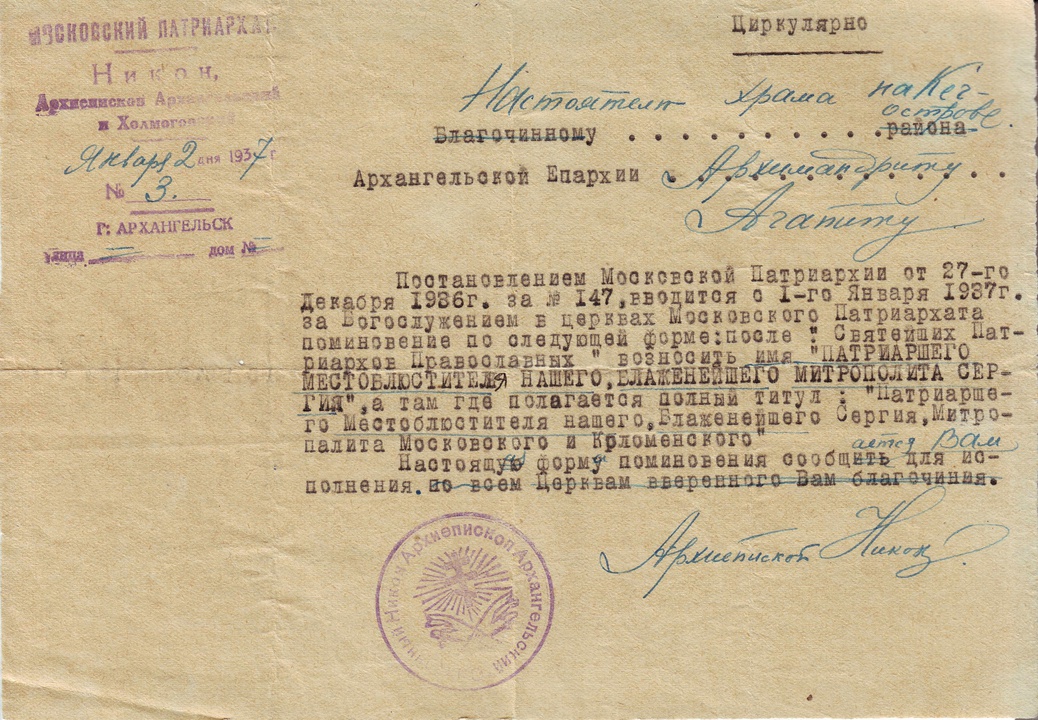 МОСКОВСКИЙ ПАТРИАРХАТ
Никон,
Архиепископ Архангельский
и Холмогорский
Января 2 дня 1937 г.
№ 3.
Г: АРХАНГЕЛЬСК
улица — дом № —
Циркулярно
Настоятелю храма на Кег-
острове.
Благочинному . . . . . . . . . . . . района
Архангельской Епархии . Архимандриту
Агапиту
Постановлением Московской Патриархии от 27-го
Декабря 1936г. за № 147,вводится с I-го Января 1937г.
за Богослужением в церквах Московского Патриархата
поминовение по следующей форме:после " Святейших Пат-
риархов Православных " возносить имя "ПАТРИАРШЕГО
МЕСТОБЛЮСТИТЕЛЯ НАШЕГО,БЛАЖЕНЕЙШЕГО МИТРОПОЛИТА СЕР-
ГИЯ",а там где полагается полный титул : "Патриарше-
го Местоблюстителя нашего,Блаженейшего Сергия,Митро-
палита Московского и Коломенского"
ается Вам
Настоящую форму поминовения сообщить для ис-
полнения.по всем Церквам вверенного Вам благочиния.
Архиепископ Никон
Никон Архиепископ Архангельский